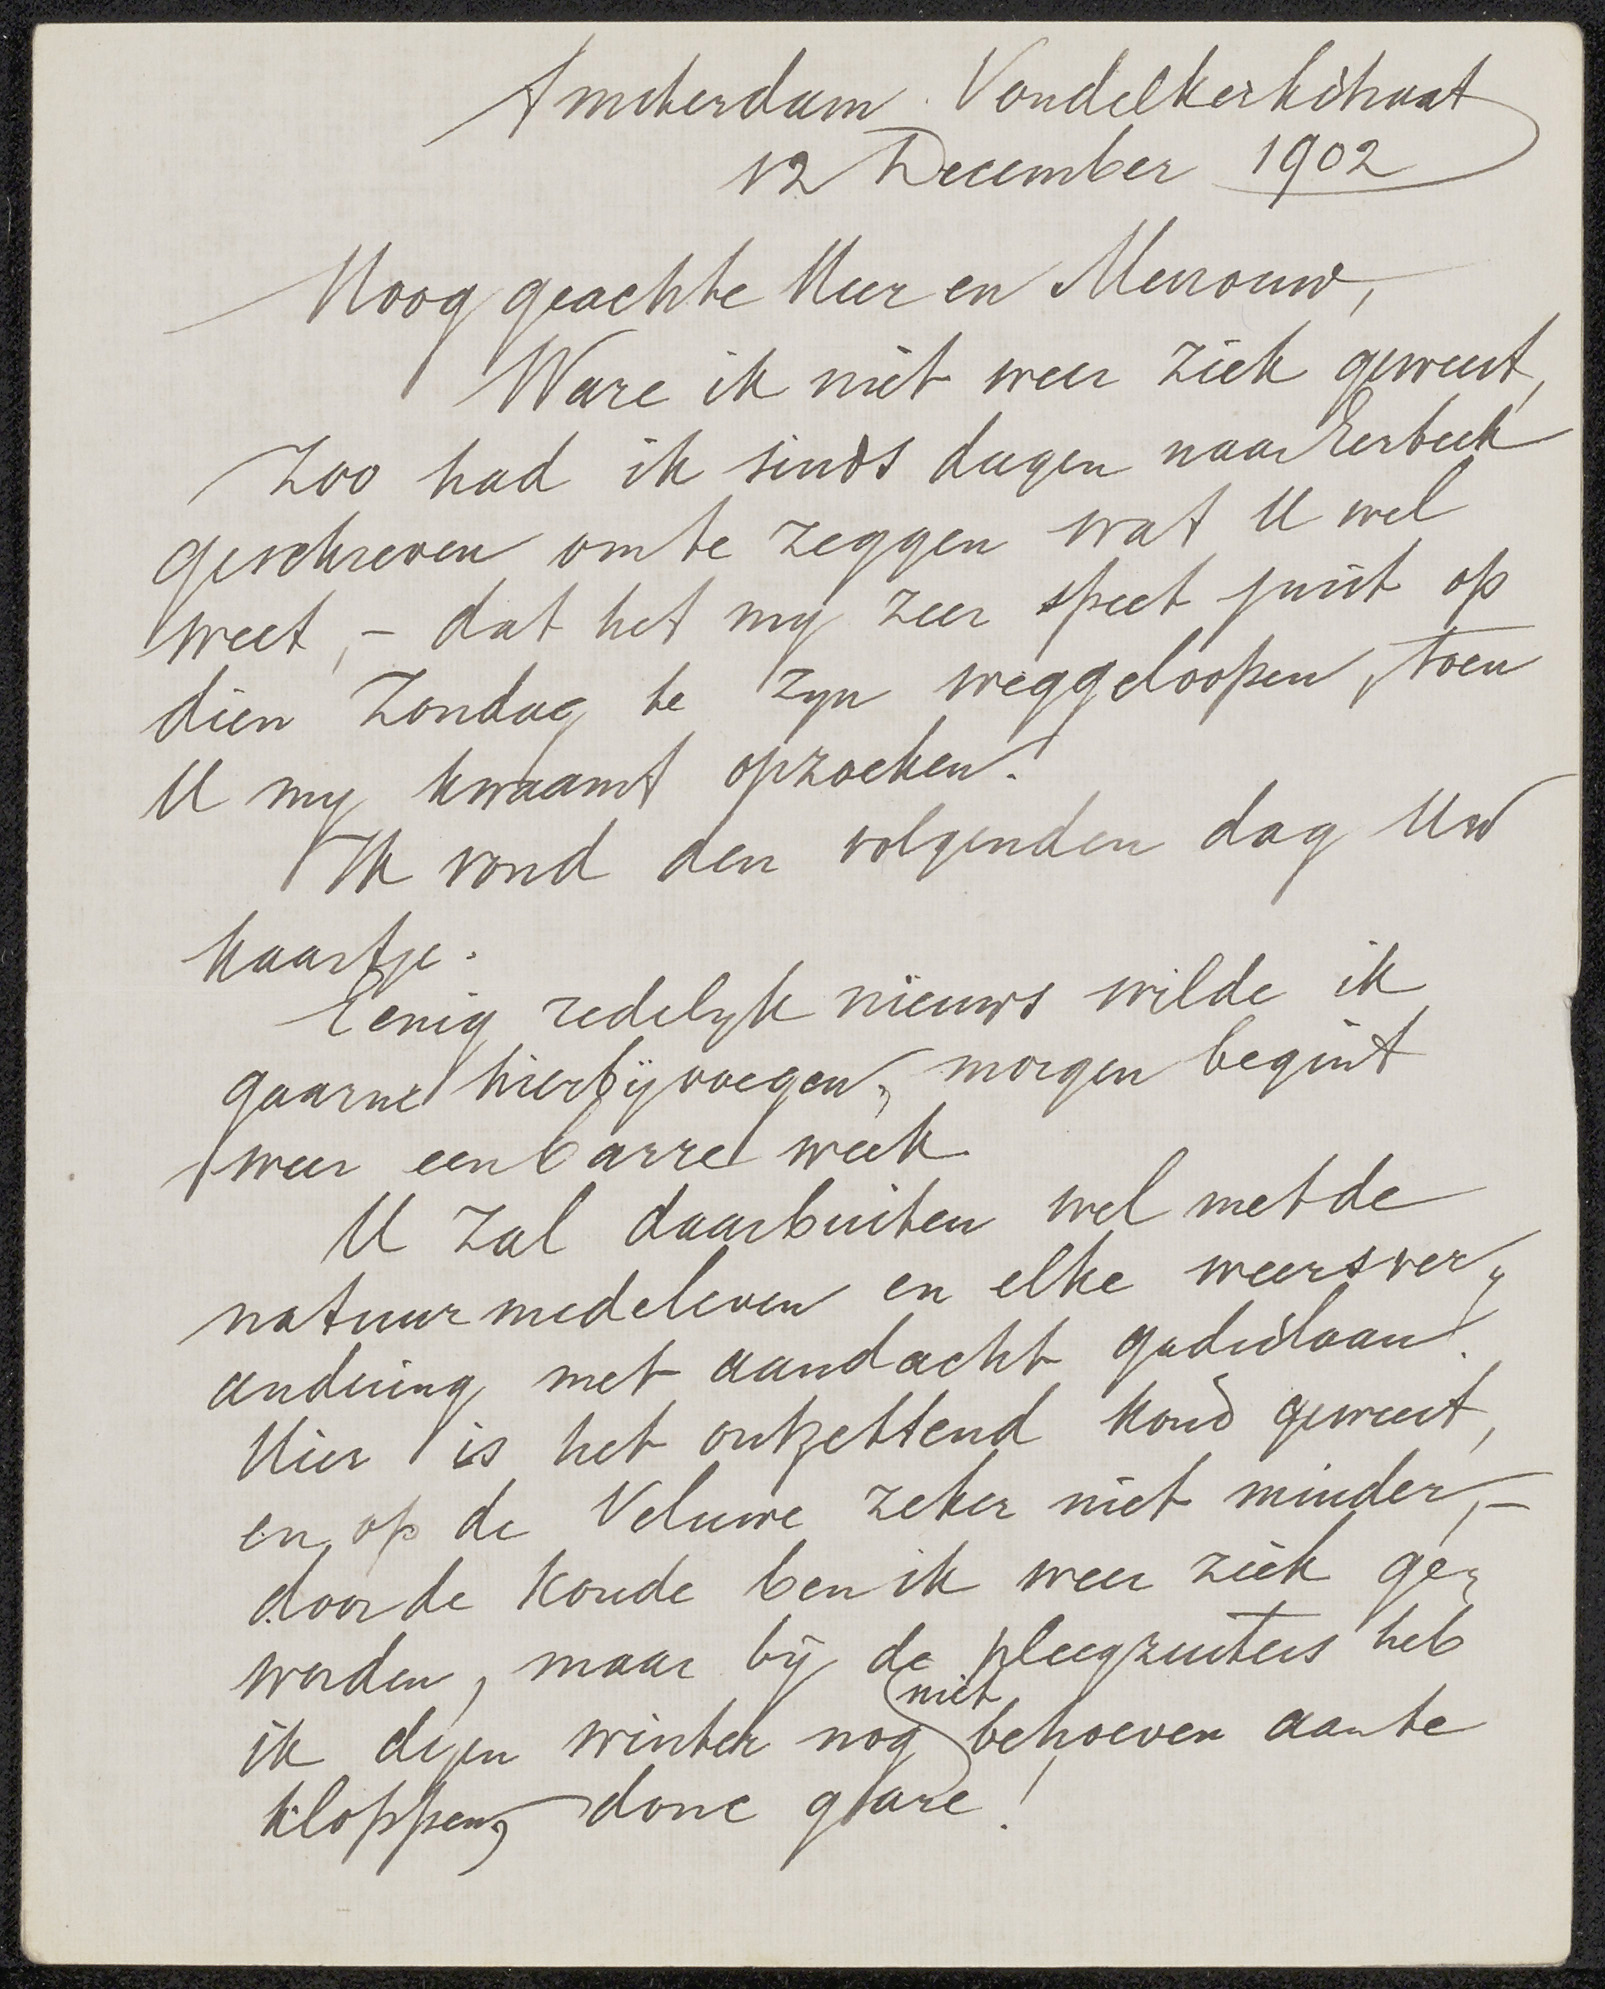 Amsterdam. Vondelkerkstraat
12 December 1902
Hooggeachte Heer en Mevrouw,
Ware ik niet weer ziek geweest,
zoo had ik sinds dagen naar Eerbeek
geschreven om te zeggen wat U wel
weet, – dat het my zeer speet juist op
dien Zondag te zyn weggeloopen, toen
U my kwaamt opzoeken.
Ik vond den volgenden dag Uw
kaartje.
Eenig redelyk nieuws wilde ik
gaarne hierbÿvoegen, morgen begint
weer een barre week.
U zal daarbuiten wel met de
natuur medeleven en elke weersver=
andering met aandacht gadeslaan.
Hier is het ontzettend koud geweest,
en op de Veluwe zeker niet minder, –
door de koude ben ik weer ziek ge=
worden, maar bÿ de pleegzusters heb
ik dezen winter nog niet behoeven aan te
kloppen, donc glare!